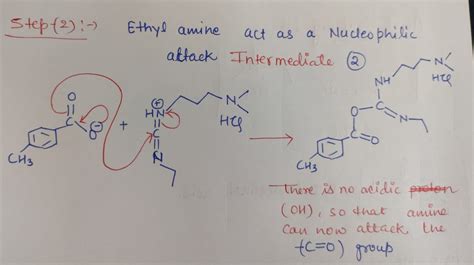 Step-(2):→ Ethyl amine act as a Nucleophilic
attack Intermediate ②
O
O⊖
CH3
+
⊕
HN
N
N
HCl
NH
N
HCl
O
N
C=O
CH3
There is no acidic proton
(OH), so that amine
can now attack the
(C=O) group